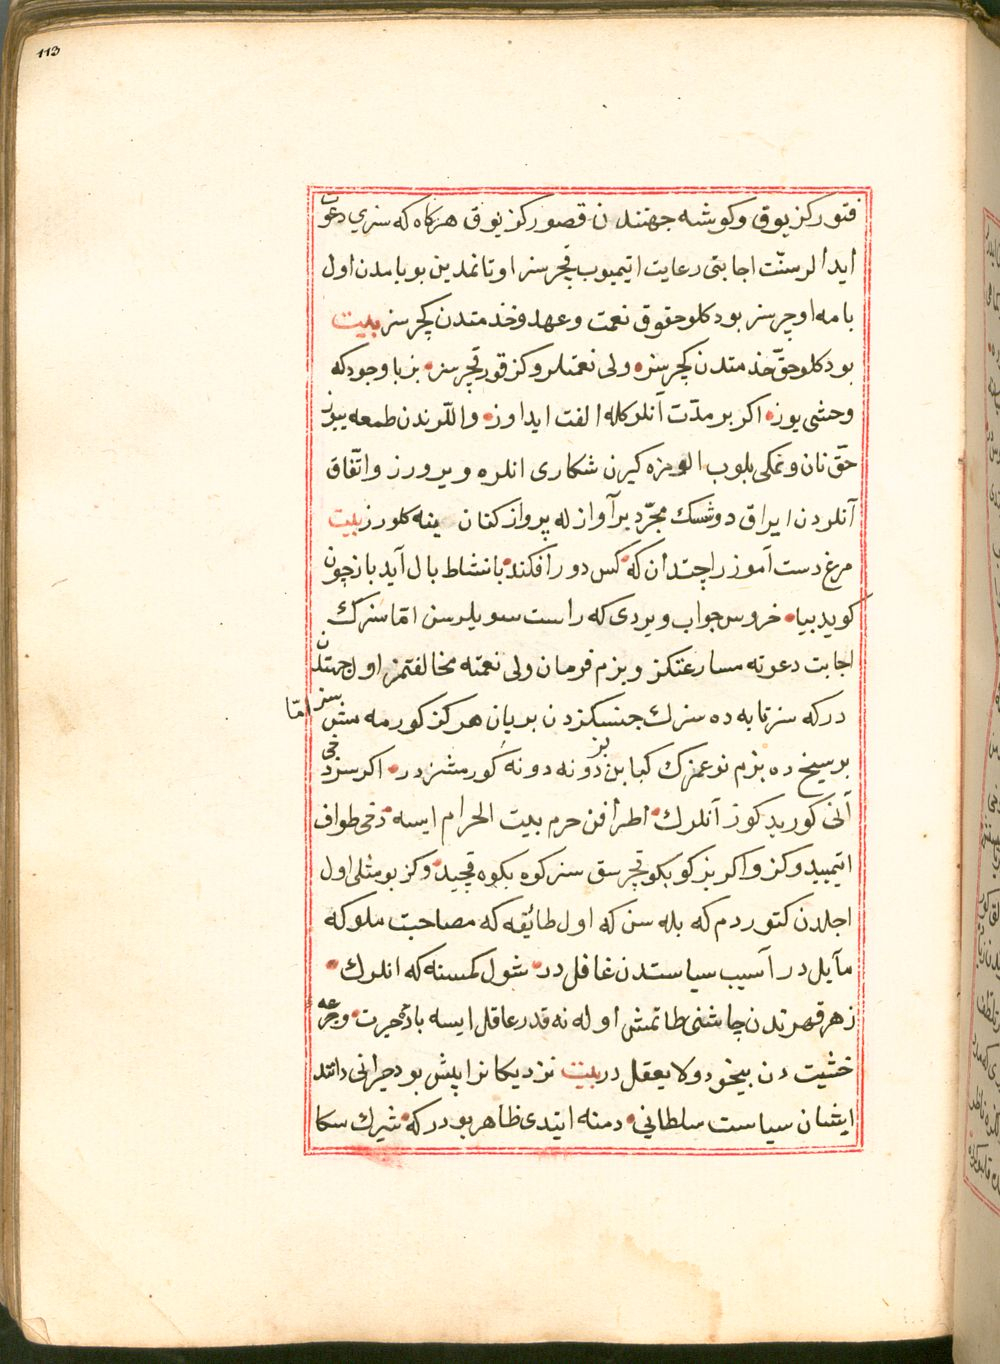 113
فتوركز يوق وكوشه جهتندن قصوركز يوق هركاه كه سزي دعوت
ايدالر سنّت اجابتى رعايت اتميوب قچرسز اوتانمدين بو بامدن اول
بامه اوچرسز بودكلو حقوق نعمت وعهد وخدمتدن كچرسز بيت
بودكلو حقّ خدمتدن كچرسزه ولى نعمتلروكز قور قچرسز بز باوجودكه
وحشى يوز اكر بر مدّت آنلر كله الفت ايداوز واللرندن طمعه ييوز
حقّ نان ونمكى بلوب الومزه كيرن شكارى انلره ويرورز واتّفاق
آنلردن ايراق دوشسك مجرّد بر آواز له پرواز كنان ينه كلورز بيت
مرغ دست آموز را چندان كه كس دور افكند بانشاط بال آيد باز چون
كويد بيا خروس جواب ويردى كه راست سويلرسن امّا سزك
اجابت دعوته مسارعتكز وبزم فرمان ولى نعمته مخالفتمز اول جهتدن
دركه سز تابه ده سزك جنسكزدن بريان هركز كورمه مشسز امّا
بز بر سيخ ده بزم نوعمزك كبابن دونه دونه كورمشزدر اكر سز دخى
آنى كوريدكوز آنلرك اطرافن حرم بيت الحرام ايسه دخى طواف
اتميدوكز واكر بز كو بكو قچرسق سز كوه بكوه قچيدوكز بو مثلى اول
اجلدن كتوردم كه بله سن كه اول طائفه كه مصاحبت ملوكه
مآيل در آسيب سياستدن غافل در شول كمسنه كه انلرك
زهر قهرندن چاشنى طاتمش اوله نه قدر عاقل ايسه باده حيرت وجرعه
خشيت دن بيخود ولا يعقل در بيت نزديكانرا پيش بود حيرانى دانند
ايشان سياست سلطاني دمنه ايتدى ظاهر بودركه شيرك سكا